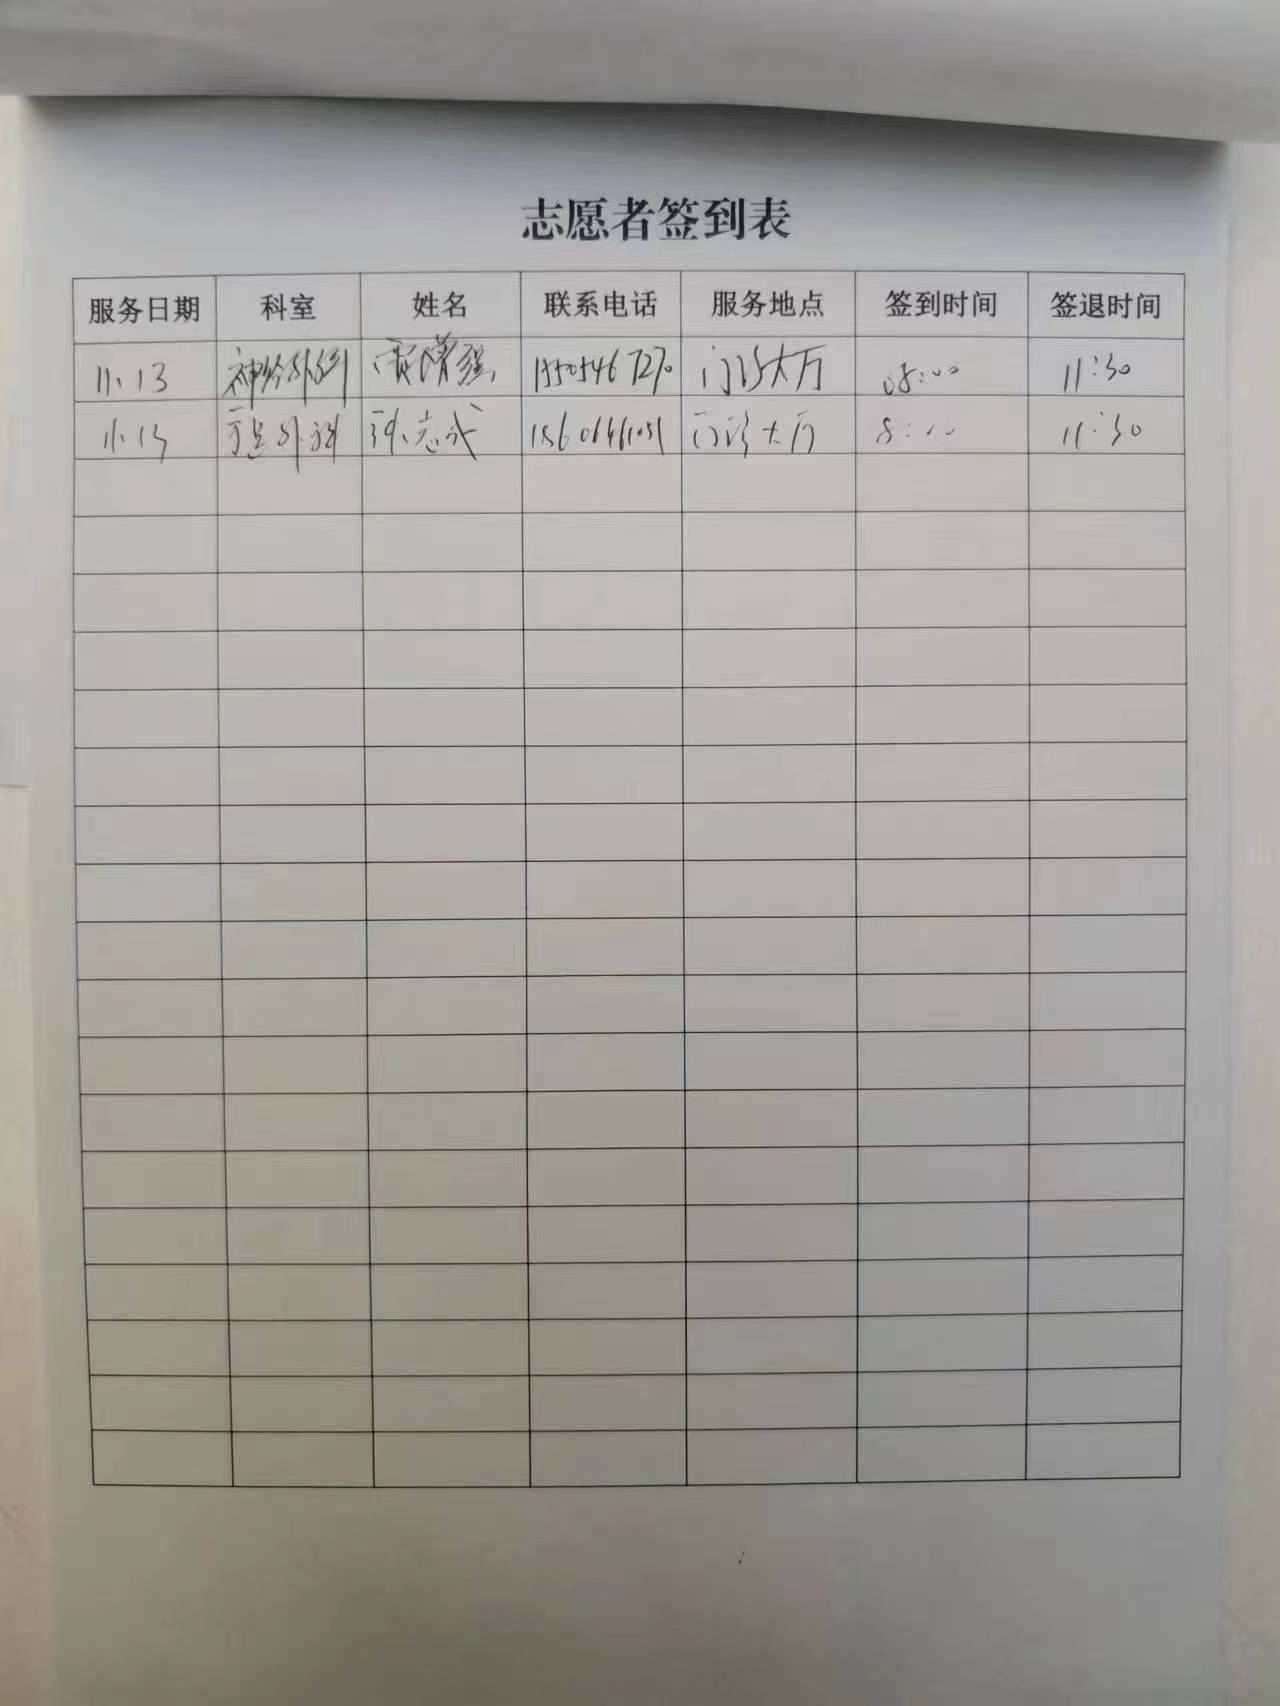 志愿者签到表
服务日期 科室 姓名 联系电话 服务地点 签到时间 签退时间
11.13 神经外科 强 15505467270 门诊大厅 08:00 11:30
11.13 外科 孙志武 门诊大厅 8:00 11:30